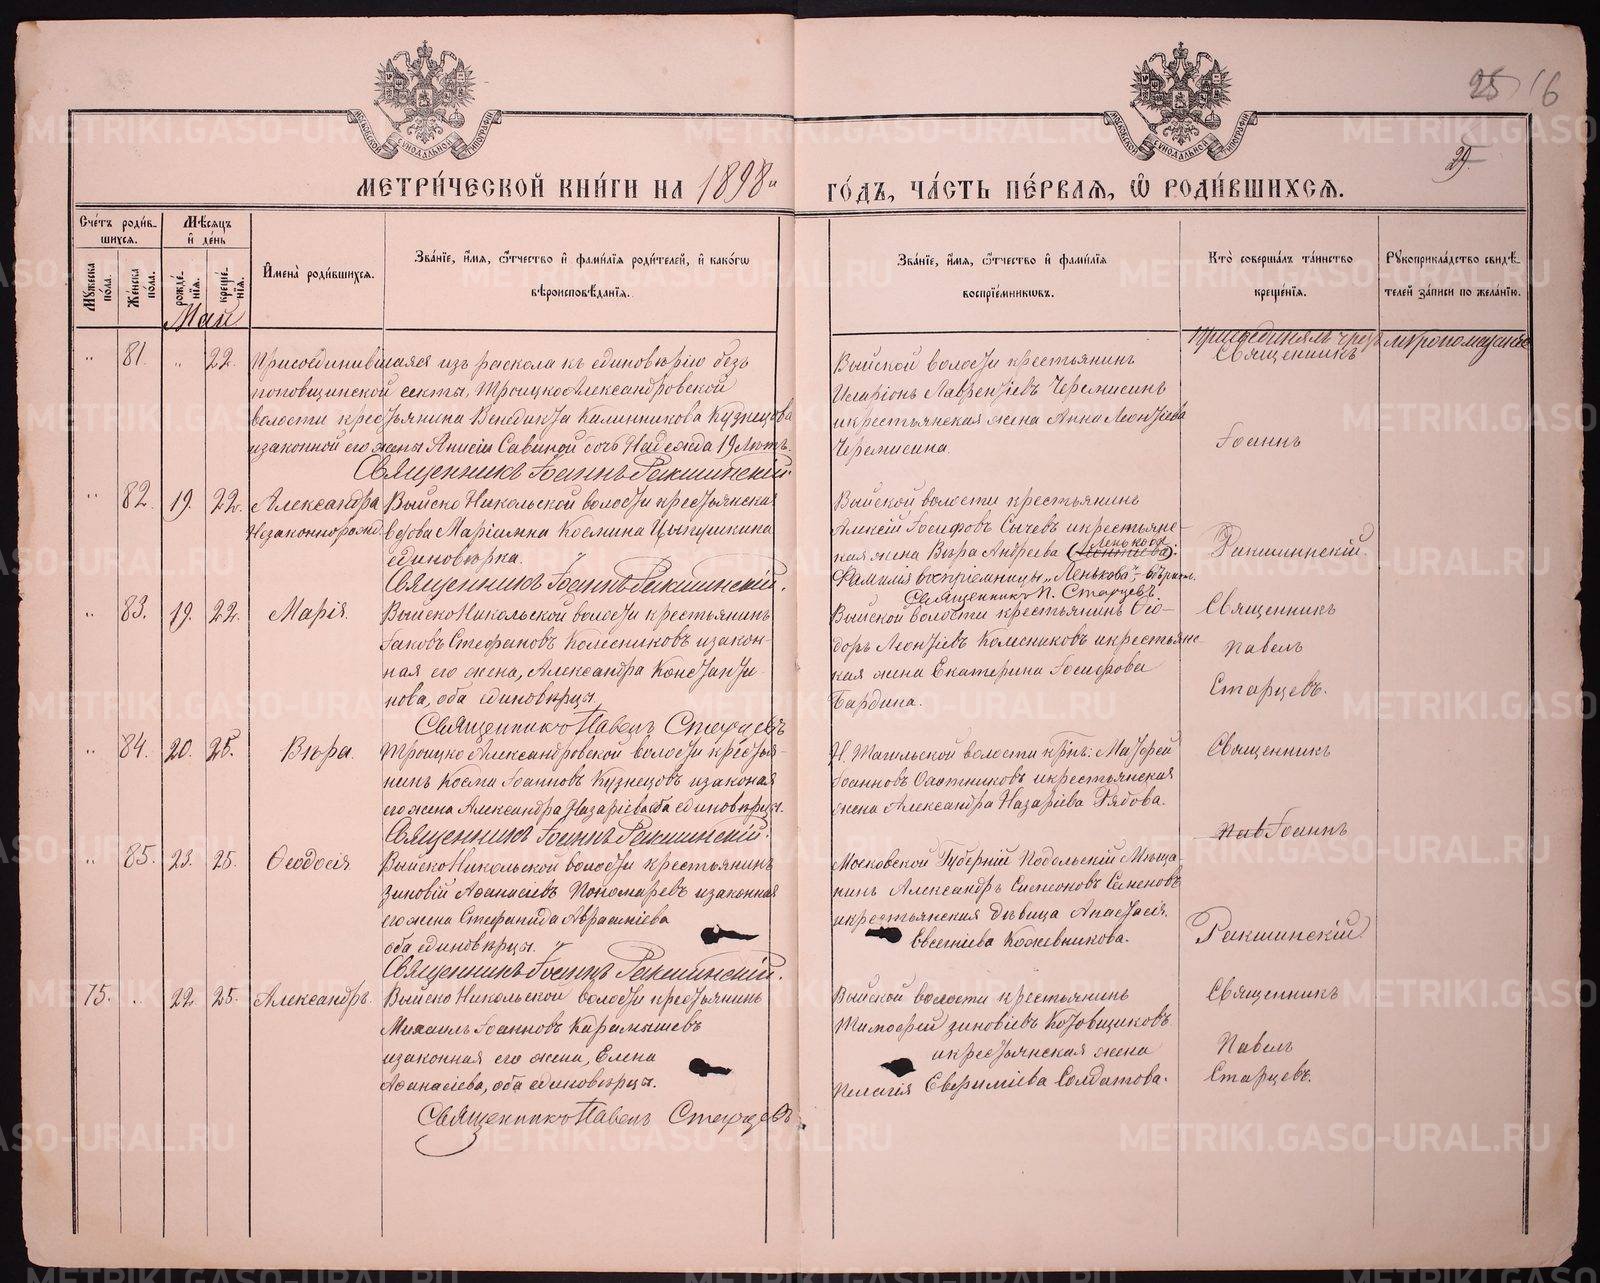 25 16
29
МЕТРИ́ЧЕСКОЙ КНИ́ГИ НА 1898й ГО́ДЪ, ЧА́СТЬ ПЕ́РВАѦ, Ѡ҆ РОДИ́ВШИХСѦ.
Сче́тъ роди́в-
шихсѧ.
Мѣ́сѧцъ
и҆ де́нь
Мꙋ́жеска
по́ла.
Же́нска
по́ла.
рожде́-
нїѧ.
креще́-
нїѧ.
И҆мена̀ роди́вшихсѧ.
Зва́нїе, и҆́мѧ, ѻ҆́тчество и҆ фами́лїѧ роди́телей, и҆ како́гѡ
вѣроисповѣ́данїѧ.
Зва́нїе, и҆́мѧ, ѻ҆́тчество и҆ фами́лїѧ
воспрїе́мникѡвъ.
Кто̀ соверша́лъ та́инство
креще́нїѧ.
Рꙋкоприкла́дство свидѣ́-
телей за́писи по жела́нїю.
Май
" 81. " 22. Присоединившаяся изъ раскола къ единовѣрію без-
поповщинской секты, Троицко Александровской
волости крестьянина Венедикта Калинникова Кузнецова
и законной его жены Анисіи Савиной дочь Надежда 19 лѣтъ.
Священникъ Іоаннъ Ракшинскій.
Выйской волости крестьянинъ
Иларіонъ Лаврентіевъ Черемисинъ
и крестьянская жена Анна Леонтіева
Черемисина.
Присоединялъ чрезъ мѵропомазаніе
Священникъ
Іоаннъ
" 82. 19. 22. Александра Выйско Никольской волости крестьянская
Незаконнорожд. вдова Маріамна Космина Цыпушкина
единовѣрка.
Священникъ Іоаннъ Ракшинскій.
Выйской волости крестьянинъ
Алексій Іосифовъ Сычевъ и крестьян-
ская жена Вѣра Андреева (Леонтіева) Ленькова.
Фамилія воспріемницы „Ленькова" – вѣрить.
Священникъ П. Старцевъ.
Ракшинскій.
" 83. 19. 22. Марія. Выйско Никольской волости крестьянинъ
Іаковъ Стефановъ Колесниковъ и закон-
ная его жена, Александра Константи-
нова, оба единовѣрцы.
Священникъ Павелъ Старцевъ
Выйской волости крестьянинъ Ѳео-
доръ Леонтіевъ Колесниковъ и крестьянс-
кая жена Екатерина Іосифова
Бардина.
Священникъ
Павелъ
Старцевъ.
" 84. 20. 25. Вѣра. Троицко Александровской волости крестья-
нинъ Косма Іоанновъ Кузнецовъ и законная
его жена Александра Назаріева оба единовѣрцы.
Священникъ Іоаннъ Ракшинскій.
Н. Тагильской волости крѣп: Матфей
Іоанновъ Охотниковъ и крестьянская
жена Александра Назаріева Рябова.
Священникъ
Пав Іоаннъ
" 85. 23. 25. Ѳеодосія Выйско Никольской волости крестьянинъ
Зиновій Аѳанасіевъ Пономаревъ и законная
его жена Стефанида Авраміева
оба единовѣрцы.
Священникъ Іоаннъ Ракшинскій.
Московской Губерніи Подольскій Мѣща-
нинъ Александръ Симоновъ Семеновъ
и крестьянская дѣвица Анастасія
Евгеніева Кожевникова.
Ракшинскій
75. " 22. 25. Александръ. Выйско Никольской волости крестьянинъ
Михаилъ Іоанновъ Карамышевъ
и законная его жена, Елена
Аѳанасіева, оба единовѣрцы.
Священникъ Павелъ Старцевъ
Выйской волости крестьянинъ
Тимофей Зиновіевъ Котовщиковъ
и крестьянская жена
Пелагія Евфиміева Солдатова.
Священникъ
Павелъ
Старцевъ.